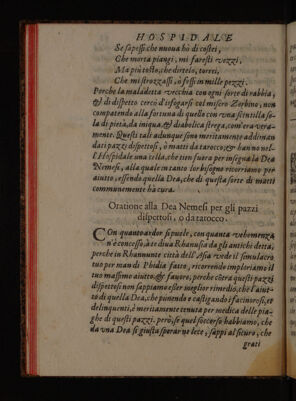 HOSPIDALE
Se sapessi, che nuoua hò di costei,
Che morta piangi, mi faresti vezzi,
Ma più tosto, che dirtelo, torrei,
Che mi strozzassi, ò fessi in mille pezzi.
Perche la maladetta vecchia con ogni sorte di rabbia,
& di dispetto cercò d'isfogarsi col misero Zerbino, non
compatendo alla fortuna di quello con vna scintilla so-
la di pietà, da iniqua, & diabolica strega, com'era vera-
mente. Questi tali adunque sono meritamente addiman
dati pazzi dispettosi, ò matti da tarocco, & hanno nel-
l'Hospidale vna cella, che tien fuora per insegna la Dea
Nemesi, alla quale in tanto lor bisogno ricorriamo per
aiuto, essendo quella Dea, che di questa sorte di matti
communemente hà cura.
Oratione alla Dea Nemesi per gli pazzi
dispettosi, o da tarocco.
CON quanto ardor si puole, con quanta vehemenza
n'è concesso, à te diua Rhanusia da gli antichi detta,
perche in Rhamnunte città dell'Asia vede il simulacro
tuo per man di Phidia fatto, ricorrendo imploriamo il
tuo massimo aiuto, & fauore, perche còtra questi pazzi
dispettosi non sappiamo esser miglior rimedio, che l'aiu-
to di quella Dea, che punendo o castigando i facinorosi, et
delinquenti, è meritamente tenuta per medica delle pia-
ghe di questi pazzi. però, se quel soccorso habbiamo, che
da vna Dea si giusta sperar ne lece, sappi al sicuro, che
grati